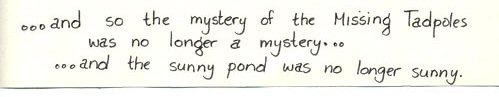 ...and so the mystery of the Missing Tadpoles
was no longer a mystery...
...and the sunny pond was no longer sunny.